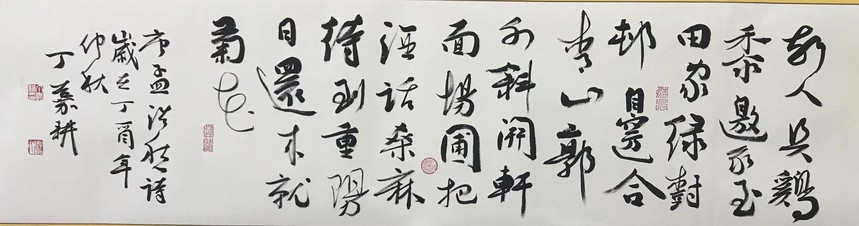 故人具鷄
黍邀我至
田家绿樹
邨邊合
青山郭
外斜開軒
面場圃把
酒話桑麻
待到重陽
日還来就
菊花
孟浩然詩
歲在丁酉年
仲秋
丁耕